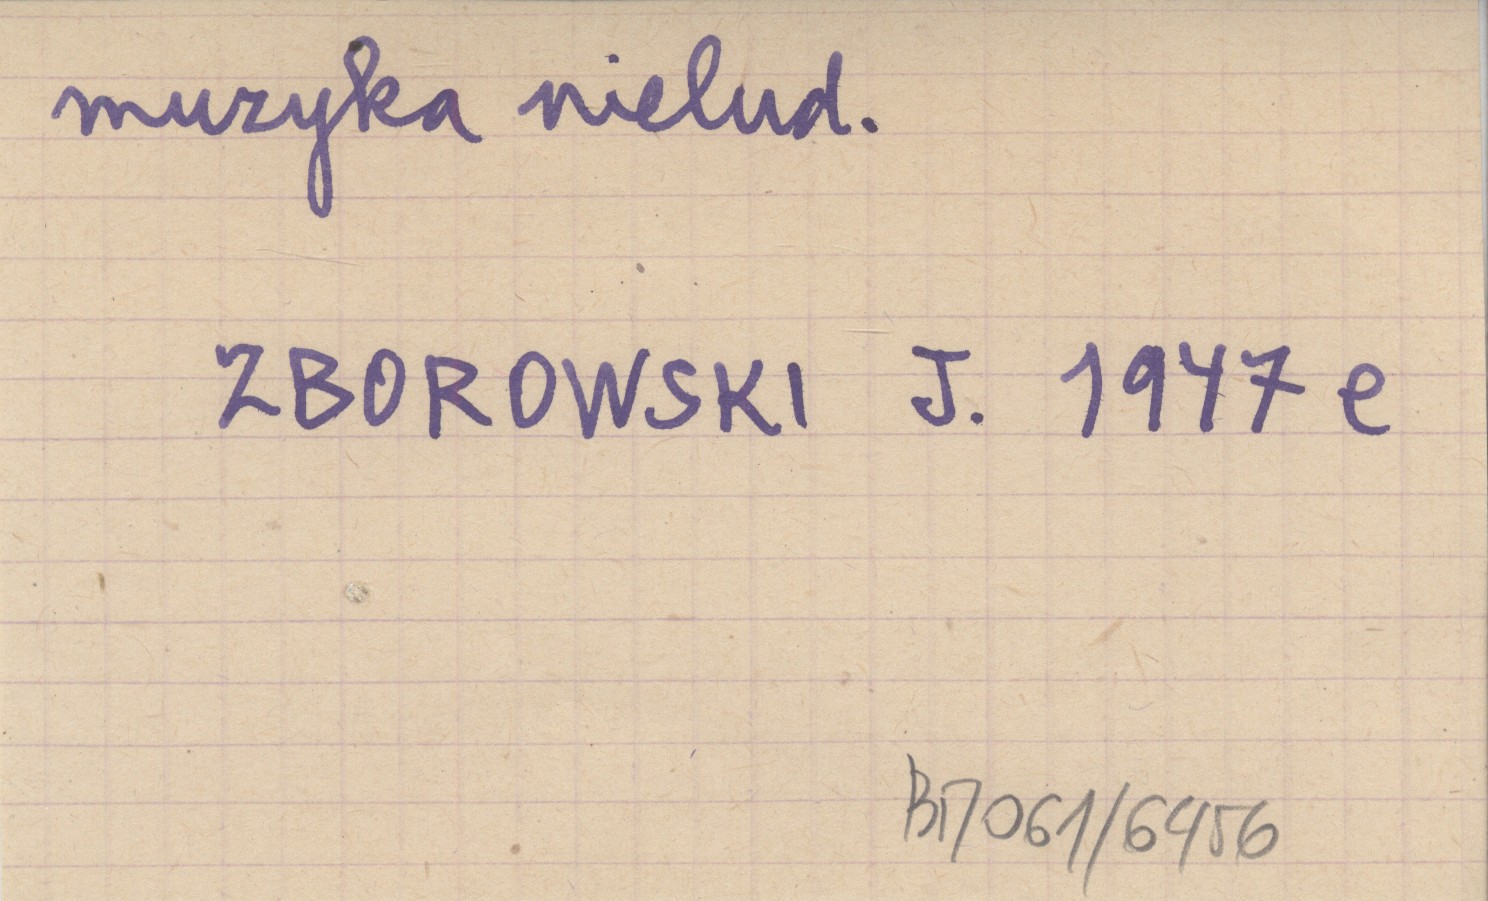 muzyka nielud.
ZBOROWSKI J. 1947 e
B17061/6456